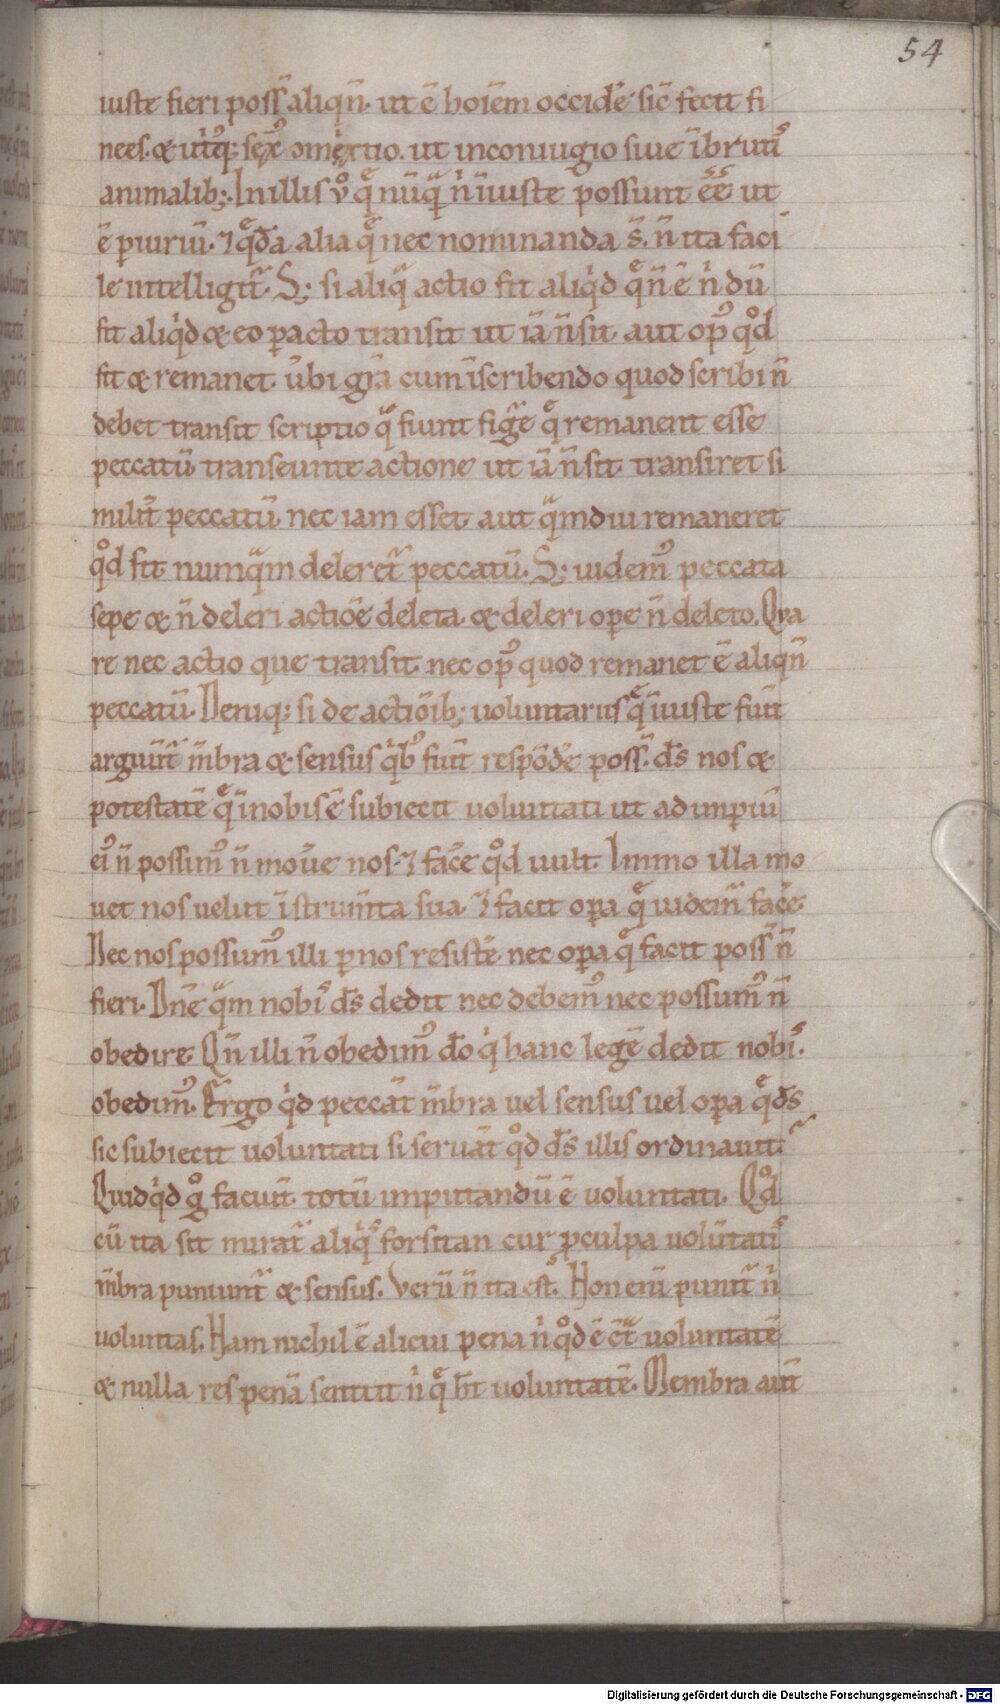 54
iuste fieri poss̄ aliqn̄. ut ē hoīem occid̄e sic̄ fecit fi
nees. & ut̓q; sex᷒ ɔmixtio. ut in coniugio siue ī bruti᷒
animalib;. In illis v̊ qͤ nūqͣ n̓ iniuste possunt ēē ut
ē ꝑiuriū. ⁊ qͤdā alia qͤ nec nominanda s̄. n̄ ita faci
le intelligit᷑. S; si aliqͣ actio fit aliq̓d qͤ n̄ ē n̓ dū
fit aliq̓d & eo ꝑacto transit ut iā n̄ sit aut op᷒ qͦd
fit & remanet. ūbi gr̄a cum īscribendo quod scribi n̄
debet transit scriptio qͣ fiunt figᷓe qͤ remanent esse
peccatū transeunte actione ut iā n̄ sit transiret si
milit̄ peccatū. nec iam esset aut qͣmdiu remaneret
qͦd fit numqͣm deleret᷑ peccatū. S; uidem᷒ peccata
sepe & n̄ deleri actiōe deleta & deleri oꝑe n̄ deleto. Qua
re nec actio que transit nec op᷒ quod remanet ē aliqn̄
peccatū. Deniq; si de actiōib; uoluntariis qͤ iniuste fiūt
arguūt᷑ m̄bra & sensus q̓b᷒ fiūt respōd̄e poss̄. d̄s nos &
potestatē qͤ ī nobis ē subiecit uoluntati ut ad imꝑiū
ei᷒ n̄ possim᷒ n̄ mou̅e nos ⁊ fac̄e qͦd uult. Immo illa mo
uet nos uelut īstrum̄ta sua. ⁊ facit oꝑa qͤ uidem᷑ fac̄e
Nec nos possum᷒ illi ꝑ nos resist̄e nec oꝑa qͤ facit poss̄ n̄
fieri. Dn̄e qͣm nobi᷒ d̄s dedit nec debem᷒ nec possum᷒ n̄
obedire. Qn̄ illi n̄ obedim᷒ d̄o q̓ hanc legē dedit nobi᷒.
obedim᷒. Ergo q̓d peccāt m̄bra uel sensus uel oꝑa qͤ d̄s
sic subiecit uoluntati si seruāt qͦd d̄s illis ordinauit.
Quidq̓d gͦ faciūt totū imputandū ē uoluntati. Qͦd
cū ita sit mirat᷑ aliq̓᷒ forsitan cur ꝓ culpa uolūtati᷒
m̄bra puniunt᷑ & sensus. Verū n̄ ita est. Non enī punit᷑ n̓
uoluntas. Nam nichil ē alicui pena n̓ qͦd ē ɔt᷑ uoluntatē
& nulla res penā sentit n̓ qͤ h̄t uoluntatē. Membra aūt
Digitalisierung gefördert durch die Deutsche Forschungsgemeinschaft - DFG